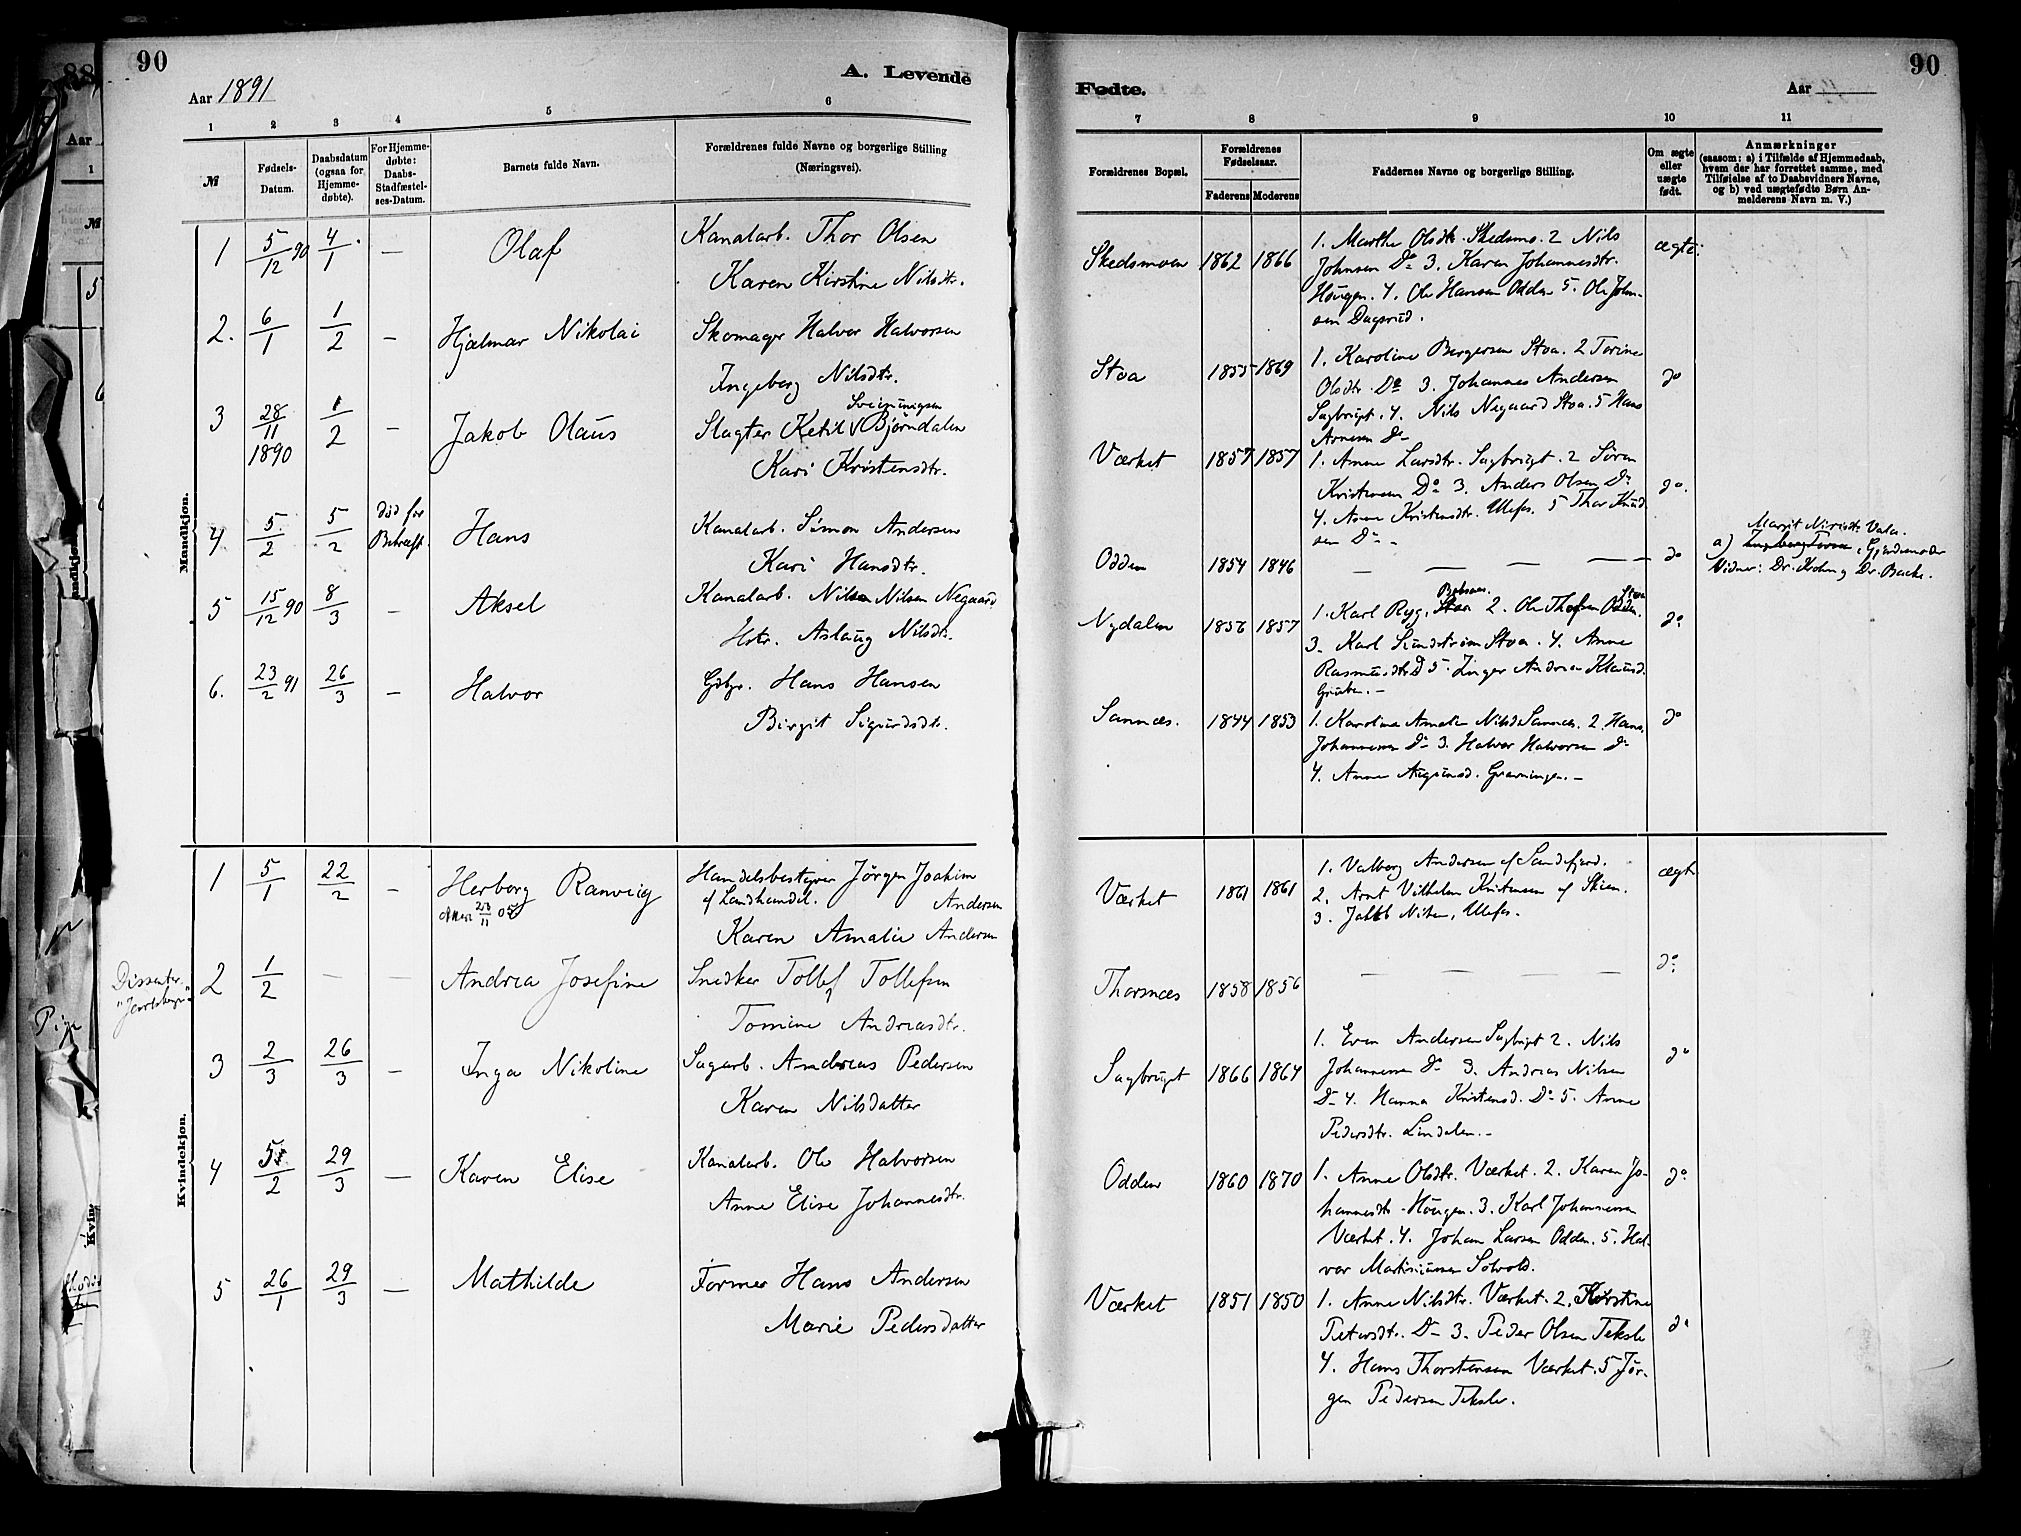 90
Aar 1891
A. Levende
1 2 3 4 5 6
№
Fødsels-
Datum.
Daabsdatum
(ogsaa for
Hjemme-
døbte).
For Hjemme-
døbte:
Daabs-
Stadfæstel-
ses-Datum.
Barnets fulde Navn.
Forældrenes fulde Navne og borgerlige Stilling
(Næringsvei).
Mandkjøn.
1 5/12 90 4/1 — Olaf Kanalarb. Thor Olsen
Karen Kirstine Nilsdtr.
2. 6/1 1/2 — Hjalmar Nikolai Skomager Halvor Halvorsen
Ingeborg Nilsdtr.
3 28/11 1890 1/2 — Jakob Olaus Slagter Ketil Sveinungsen Bjørndalen
Kari Kristensdtr.
4 5/2 5/2 død før
Bekræft. Hans Kanalarb. Simon Andersen
Kari Hansdtr.
5 15/12 90 8/3 — Aksel Kanalarb. Nils Nilsen Negaard
Hstr. Aslaug Nilsdtr.
6. 23/2 91 26/3 — Halvor Gbr. Hans Hansen
Birgit Sigurdsdtr.
Kvindekjøn.
1 5/1 22/2 — Herborg Ranveig Handelsbestyrer Jørgen Joakim
23/11 05 af Landhandel. Andersen
Karen Amalie Andersen
Dissenter
2 1/2 — — Andrea Josefine Snedker Tollef Tollefsen
Tomine Andreasdtr.
3 2/3 26/3 — Inga Nikoline Sagarb. Andreas Pedersen
Karen Nilsdatter
4 5/2 29/3 — Karen Elise Kanalarb. Ole Halvorsen
Anne Elise Johannesdtr.
5 26/1 29/3 — Mathilde Former Hans Andersen
Marie Pedersdatter
Fødte.
Aar
90
7 8 9 10 11
Forældrenes Bopæl.
Forældrenes
Fødselsaar.
Faderens Moderens
Faddernes Navne og borgerlige Stilling.
Om ægte
eller
uægte
født.
Anmærkninger
(saasom: a) i Tilfælde af Hjemmedaab,
hvem der har forrettet samme, med
Tilføielse af to Daabsvidners Navne,
og b) ved uægtefødte Børn An-
melderens Navn m. V.)
Skedsmoen 1862 1866 1. Marthe Olsdtr. Skedsmo. 2 Nils ægte.
Johnsen Do 3. Karen Johannesdtr.
Haugen. 4. Ole Hansen Odden 5. Ole John-
sen Dagsrud.
Stoa 1855 1869 1. Karoline Bergersen Stoa. 2 Torine
Olsdtr. Do 3. Johannes Andersen do
Sagbruget. 4. Nils Negaard Stoa. 5 Hans
Arnesen Do
Værket 1857 1857 1. Anne Larsdtr. Sagbruget. 2 Søren
Kristensen Do 3. Anders Olsen Do do.
4. Anne Kristensdtr. Ulefos. 5 Thor Knud-
sen Do
Odden 1854 1846 — — — — do
a) Gjordemoder
Vidner: Dr. Holm og Dr. Backe.
Nydalen 1856 1857 1. Karl Ryg. 2. Ole Thofsen Stoa do
3. Karl Sundstrøm Stoa. 4. Anne
Rasmusdtr. Do 5. Inger Andrea Klausd.
Gruben.
Sannæs. 1844 1853 1. Karoline Amalie Nilsd. Sannæs. 2. Hans do
Johannesen Do 3. Halvor Halvorsen Do
4. Anne Aagunsd. Gravningen.
Værket 1861 1861 1. Valborg Andersen af Sandefjord. ægte
2. Arnt Vilhelm Kristensen af Skien.
3. Jakob Nilsen, Ulefos.
Thorsnæs 1858 1856 — — — — do
Sagbruget 1866 1864 1. Even Andersen Sagbruget 2. Nils do
Johannesen Do 3. Andreas Nilsen
Do 4. Hanna Kristensd. Do 5. Anne
Pedersdtr. Lindalen.
Odden 1860 1870 1. Anne Olsdtr. Værket. 2. Karen Jo- do
hannesdtr. Haugen. 3. Karl Johannesen
Værket. 4. Johan Larsen Odden. 5. Hal-
vor Martiniussen Solvold.
Værket 1851 1850 1. Anne Nilsdtr. Værket. 2. Kirstine
Petersdtr. Do 3. Peder Olsen Teksle do
4. Hans Thorstensen Værket. 5 Jør-
gen Pedersen Teksle.